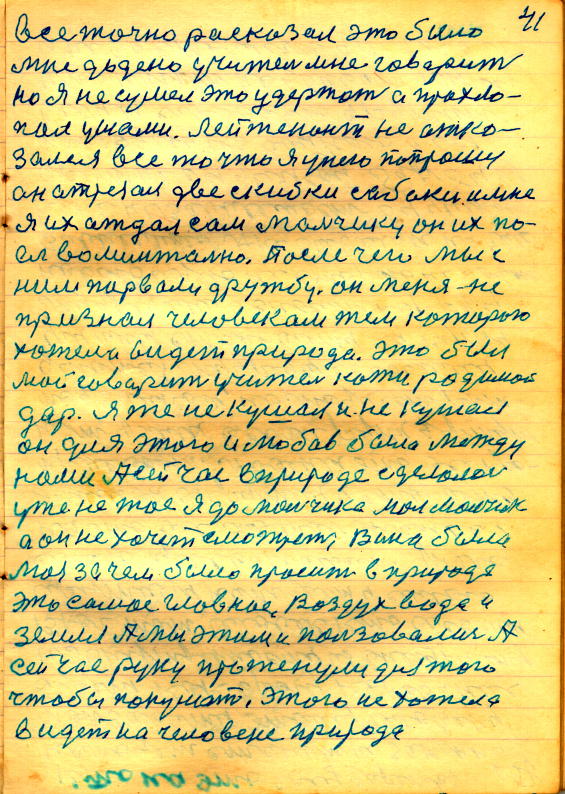 41
все точно расказал это было
мне дадено учител мне говарит
но я не сумел это удержат а прохло-
пал ушами. Лейтенонт не атко-
зался все то что я унего попрошу
он атрезал две скибки сабаки, и мне
я их атдал сам малчику он их по-
ел воминтално. После чего мы с
ним парвали дружбу. он меня не
признал человекам тем которого
хотела видет природа. Это был
мой говарит учител кати родимой
дар. Я те не кушал и не кушал
он для этого и любов была между
нами А сейчас в природе сделолос
уже не тое я до малчика мол малчик
а он не хочет смотрет, Вина была
моя зачем было просит в природе
это самое главное, Воздух вода и
земля А мы этим и ползовалис А
сейчас руку протенули для того
чтобы покушат. Этого не хотела
видет на человеке природа